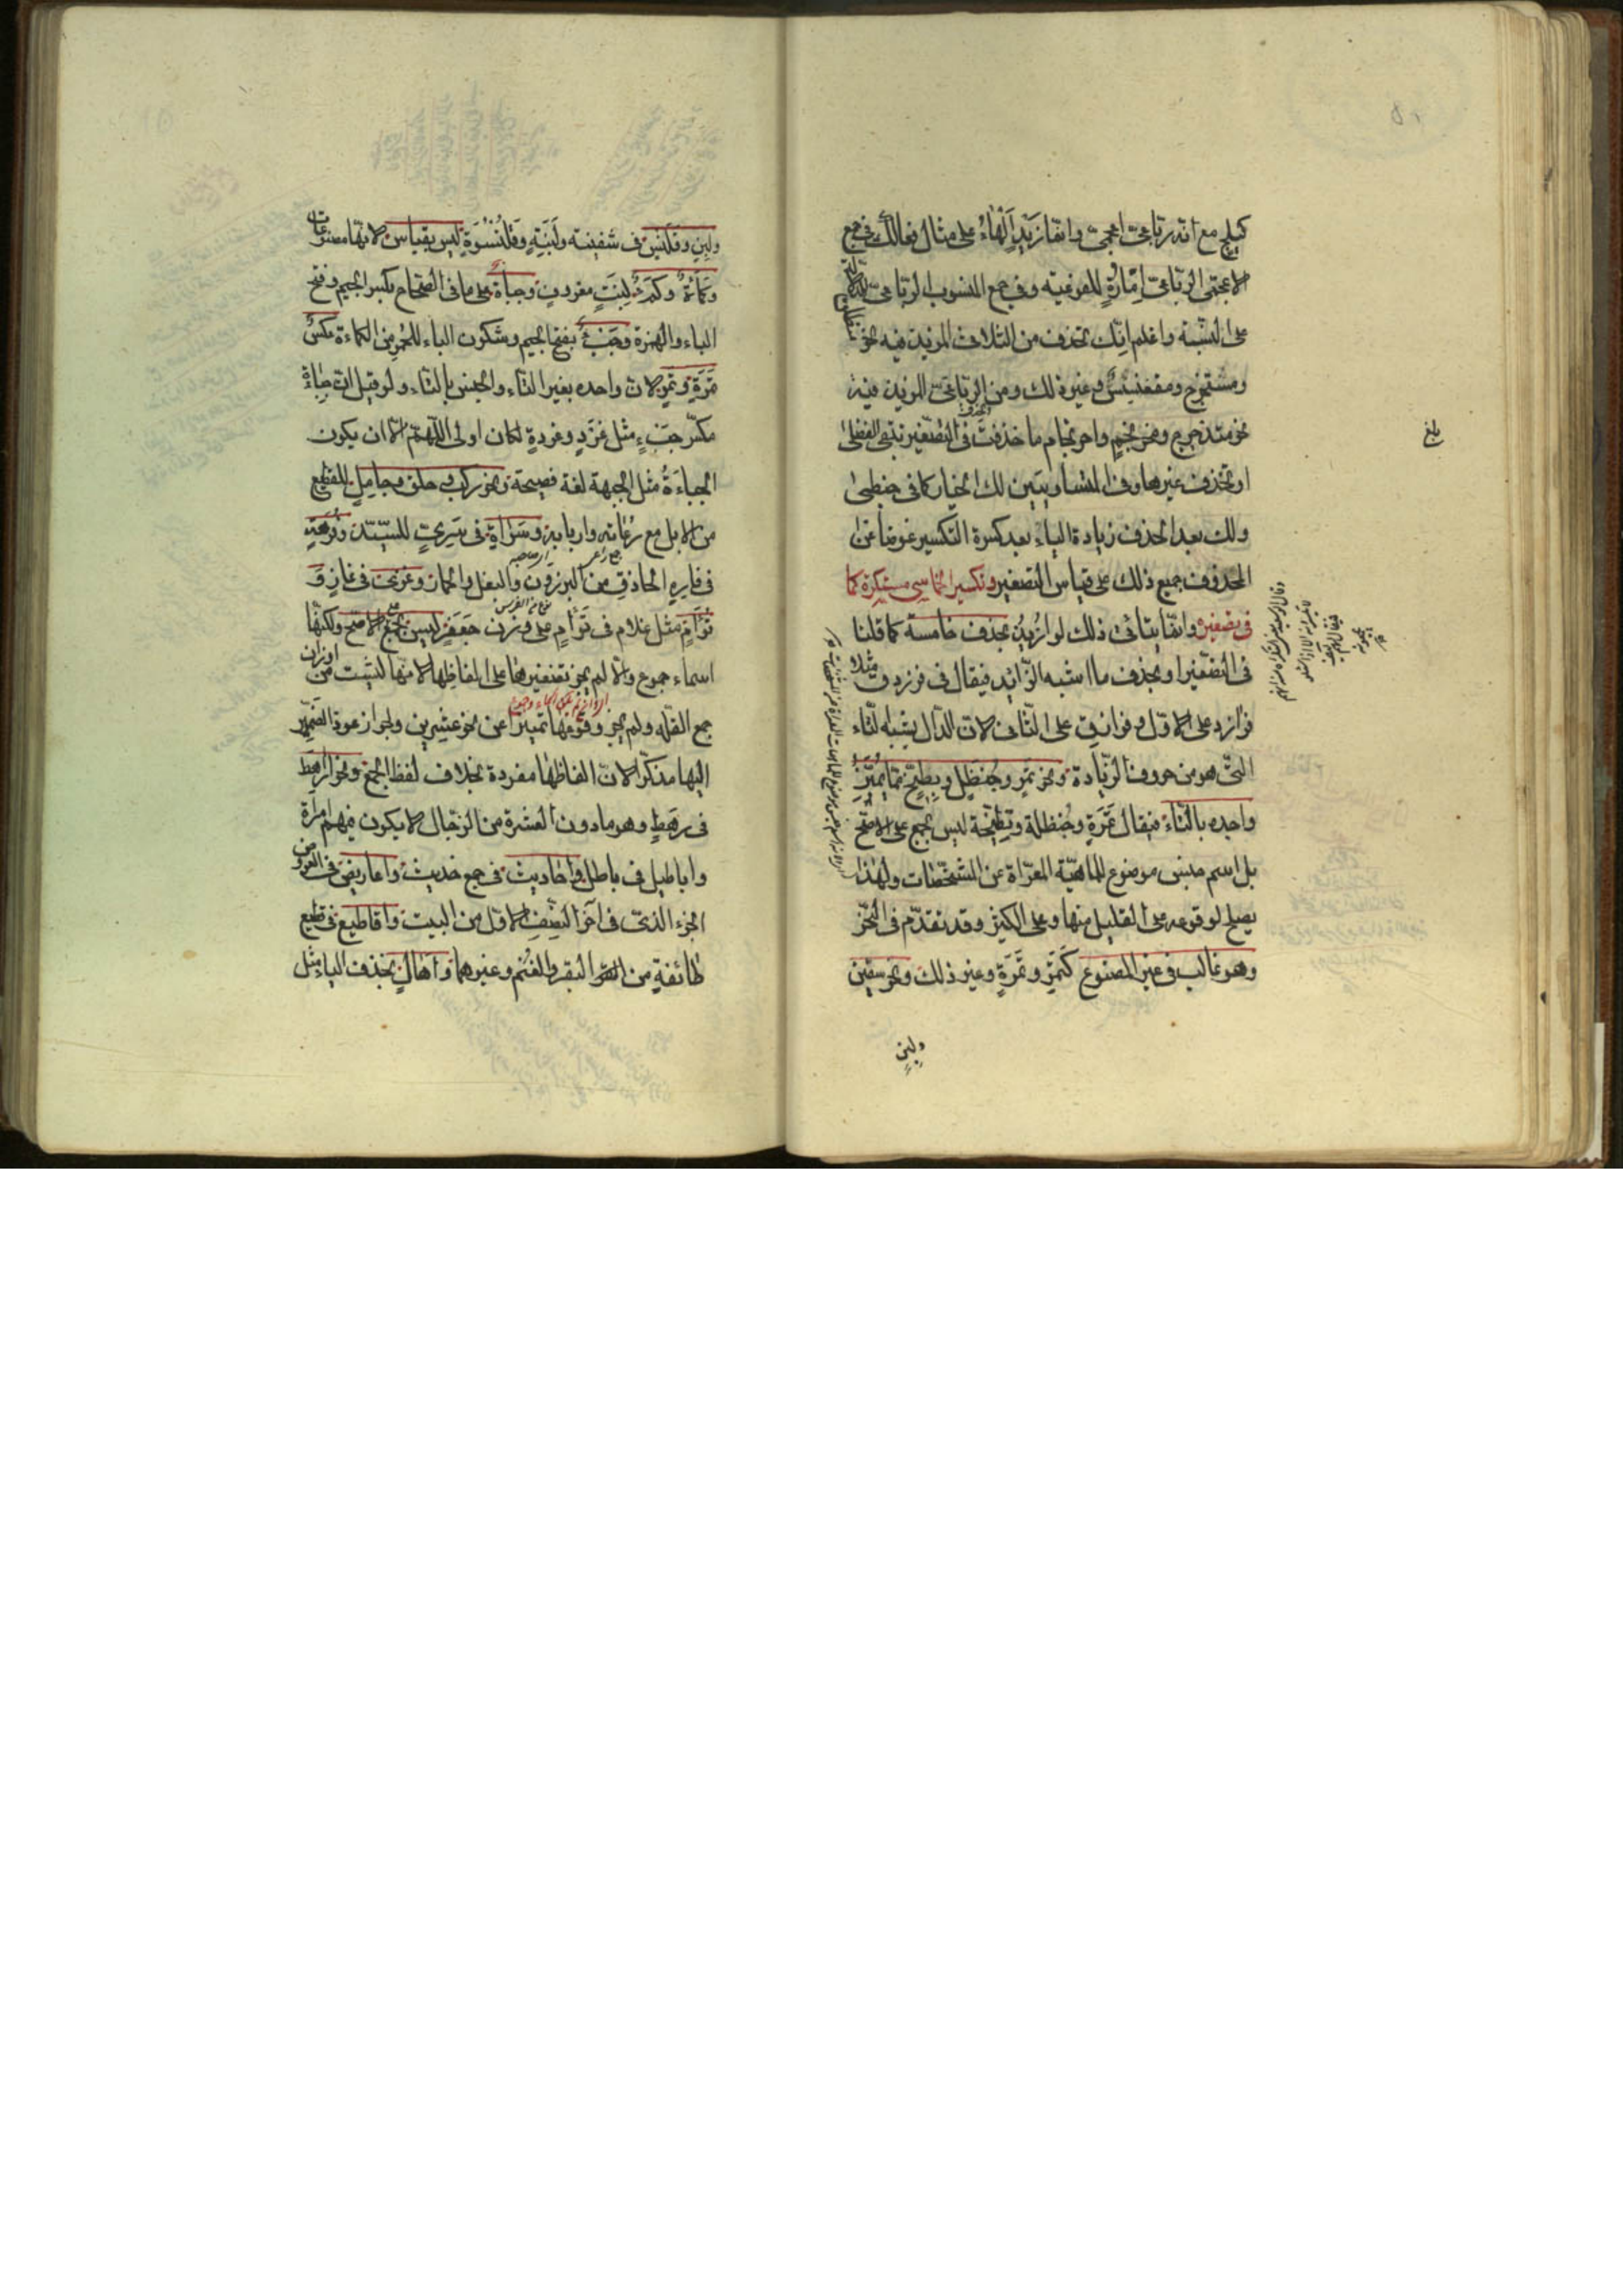 كيلج مع انه رباعى اعجمى وانما زيد الهاء على مثال فعالل فى جمع
الاعجمى الرباعى امارة للفرعية وفى جمع المنسوب الرباعى للدلالة
على النسبة واعلم انك تحذف من الثلاثى المزيد فيه نحو
ومستخرج ومقعنسس وغير ذلك ومن الرباعى المزيد فيه
نحو متدحرج ومحرنجم واحرنجام ما حذفت فى التصغير تبقى الفضلى
او تحذف غيرها وفى المتساويتين لك الخيار كما فى حبنطى
ولك بعد الحذف زيادة الياء بعد كسرة التكسير عوضا عن
المحذوف جميع ذلك على قياس التصغير وتكسير الخماسى مستكره كما
فى تصغيره وانما يتأتى ذلك لو اريد بحذف خامسه كما قلنا
فى التصغير او بحذف ما اشبه الزائد فيقال فى فرزدق مثلا
فرازد على الاول وفرازق على الثانى لان الدال يشبه التاء
التى هو من حروف الزيادة ونحو تمر وحنظل وبطيخ مما يميز
واحده بالتاء فيقال تمرة وحنظلة وبطيخة ليس بجمع على الاصح
بل اسم جنس موضوع للماهية المعراة عن المشخصات ولهذا
يصلح لوقوعه على القليل منها وعلى الكثير وقد تقدم فى النحو
وهو غالب فى غير المصنوع كتمر وتمرة وغير ذلك ونحو سفين
ولبن
بلغ
ولبن وقلنس فى سفينة ولبنة وقلنسوة ليس بقياس لانها مصنوعات
وكمأة وكمء لنبت معروف وجبأة على ما فى الصحاح بكسر الجيم وفتح
الباء والهمزة وجبء بفتح الجيم وسكون الباء للحمر من الكمأة عكس
تمرة وتمر لان واحده بغير التاء والجنس بالتاء ولو قيل ان جباة
مكسر جبء مثل غرد وغردة لكان اولى اللهم الا ان يكون
الجباءة مثل الجبهة لغة فصيحة ونحو ركب وحلق وجامل للقطيع
من الابل مع رعاته واربابه وسراة فى سرى للسيد وفرهة
فى فاره الحاذق من البرذون والبغل والحمار وغزى فى غاز و
تؤام مثل غلام فى توأم على وزن جعفر ليس بجمع على الاصح ولكنها
اسماء جموع والا لم يجز تصغيرها على الفاظها لانها ليست من اوزان
جمع القلة ولم يجز وقوعها تمييزا عن نحو عشرين ولجواز عود الضمير
اليها مذكرا لان الفاظها مفردة بخلاف لفظ الجمع ونحو اراهط
فى رهط وهو ما دون العشرة من الرجال لا يكون فيهم امراة
واباطيل فى باطل واحاديث فى جمع حديث واعاريض فى العروض
الجزء الذى فى آخر النصف الاول من البيت واقاطيع فى قطيع
طائفة من البقر والغنم وغيرهما واهال بحذف الياء مثل